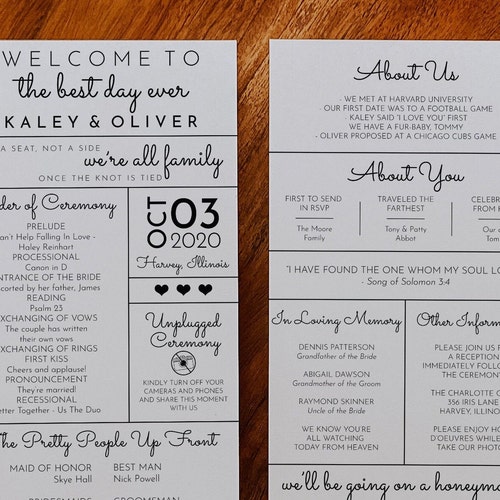 WELCOME TO
the best day ever
KALEY & OLIVER
A SEAT, NOT A SIDE
we're all family
ONCE THE KNOT IS TIED
of Ceremony
PRELUDE
Can't Help Falling In Love -
Haley Reinhart
PROCESSIONAL
Canon in D
ENTRANCE OF THE BRIDE
escorted by her father, James
READING
Psalm 23
EXCHANGING OF VOWS
The couple has written
their own vows
EXCHANGING OF RINGS
FIRST KISS
Cheers and applause!
PRONOUNCEMENT
They're married!
RECESSIONAL
Better Together - Us The Duo
OCT
03
2020
Harvey, Illinois
Unplugged
Ceremony
KINDLY TURN OFF YOUR
CAMERAS AND PHONES
AND SHARE THIS MOMENT
WITH US
The Pretty People Up Front
MAID OF HONOR
Skye Hall
BEST MAN
Nick Powell
BRIDESMAIDS
GROOMSMAN
About Us
- WE MET AT HARVARD UNIVERSITY
- OUR FIRST DATE WAS TO A FOOTBALL GAME
KALEY SAID 'I LOVE YOU' FIRST
WE HAVE A FUR-BABY, TOMMY
- OLIVER PROPOSED AT A CHICAGO CUBS GAME
About You
FIRST TO SEND
IN RSVP
The Moore
Family
TRAVELED THE
FARTHEST
Tony & Patty
Abbot
FROM
Our
"I HAVE FOUND THE ONE WHOM MY SOUL
- Song of Solomon 3:4
In Loving Memory
DENNIS PATTERSON
Grandfather of the Bride
ABIGAIL DAWSON
Grandmother of the Groom
RAYMOND SKINNER
Uncle of the Bride
WE KNOW YOU'RE
ALL WATCHING
TODAY FROM HEAVEN
Other
PLEASE JOIN US
A RECEPTION
IMMEDIATELY
THE CEREMONY
THE CHARLOTTE
356 IRIS LANE
HARVEY, ILLINOIS
PLEASE ENJOY
D'OEUVRES WHILE
TO
we'll be going on a